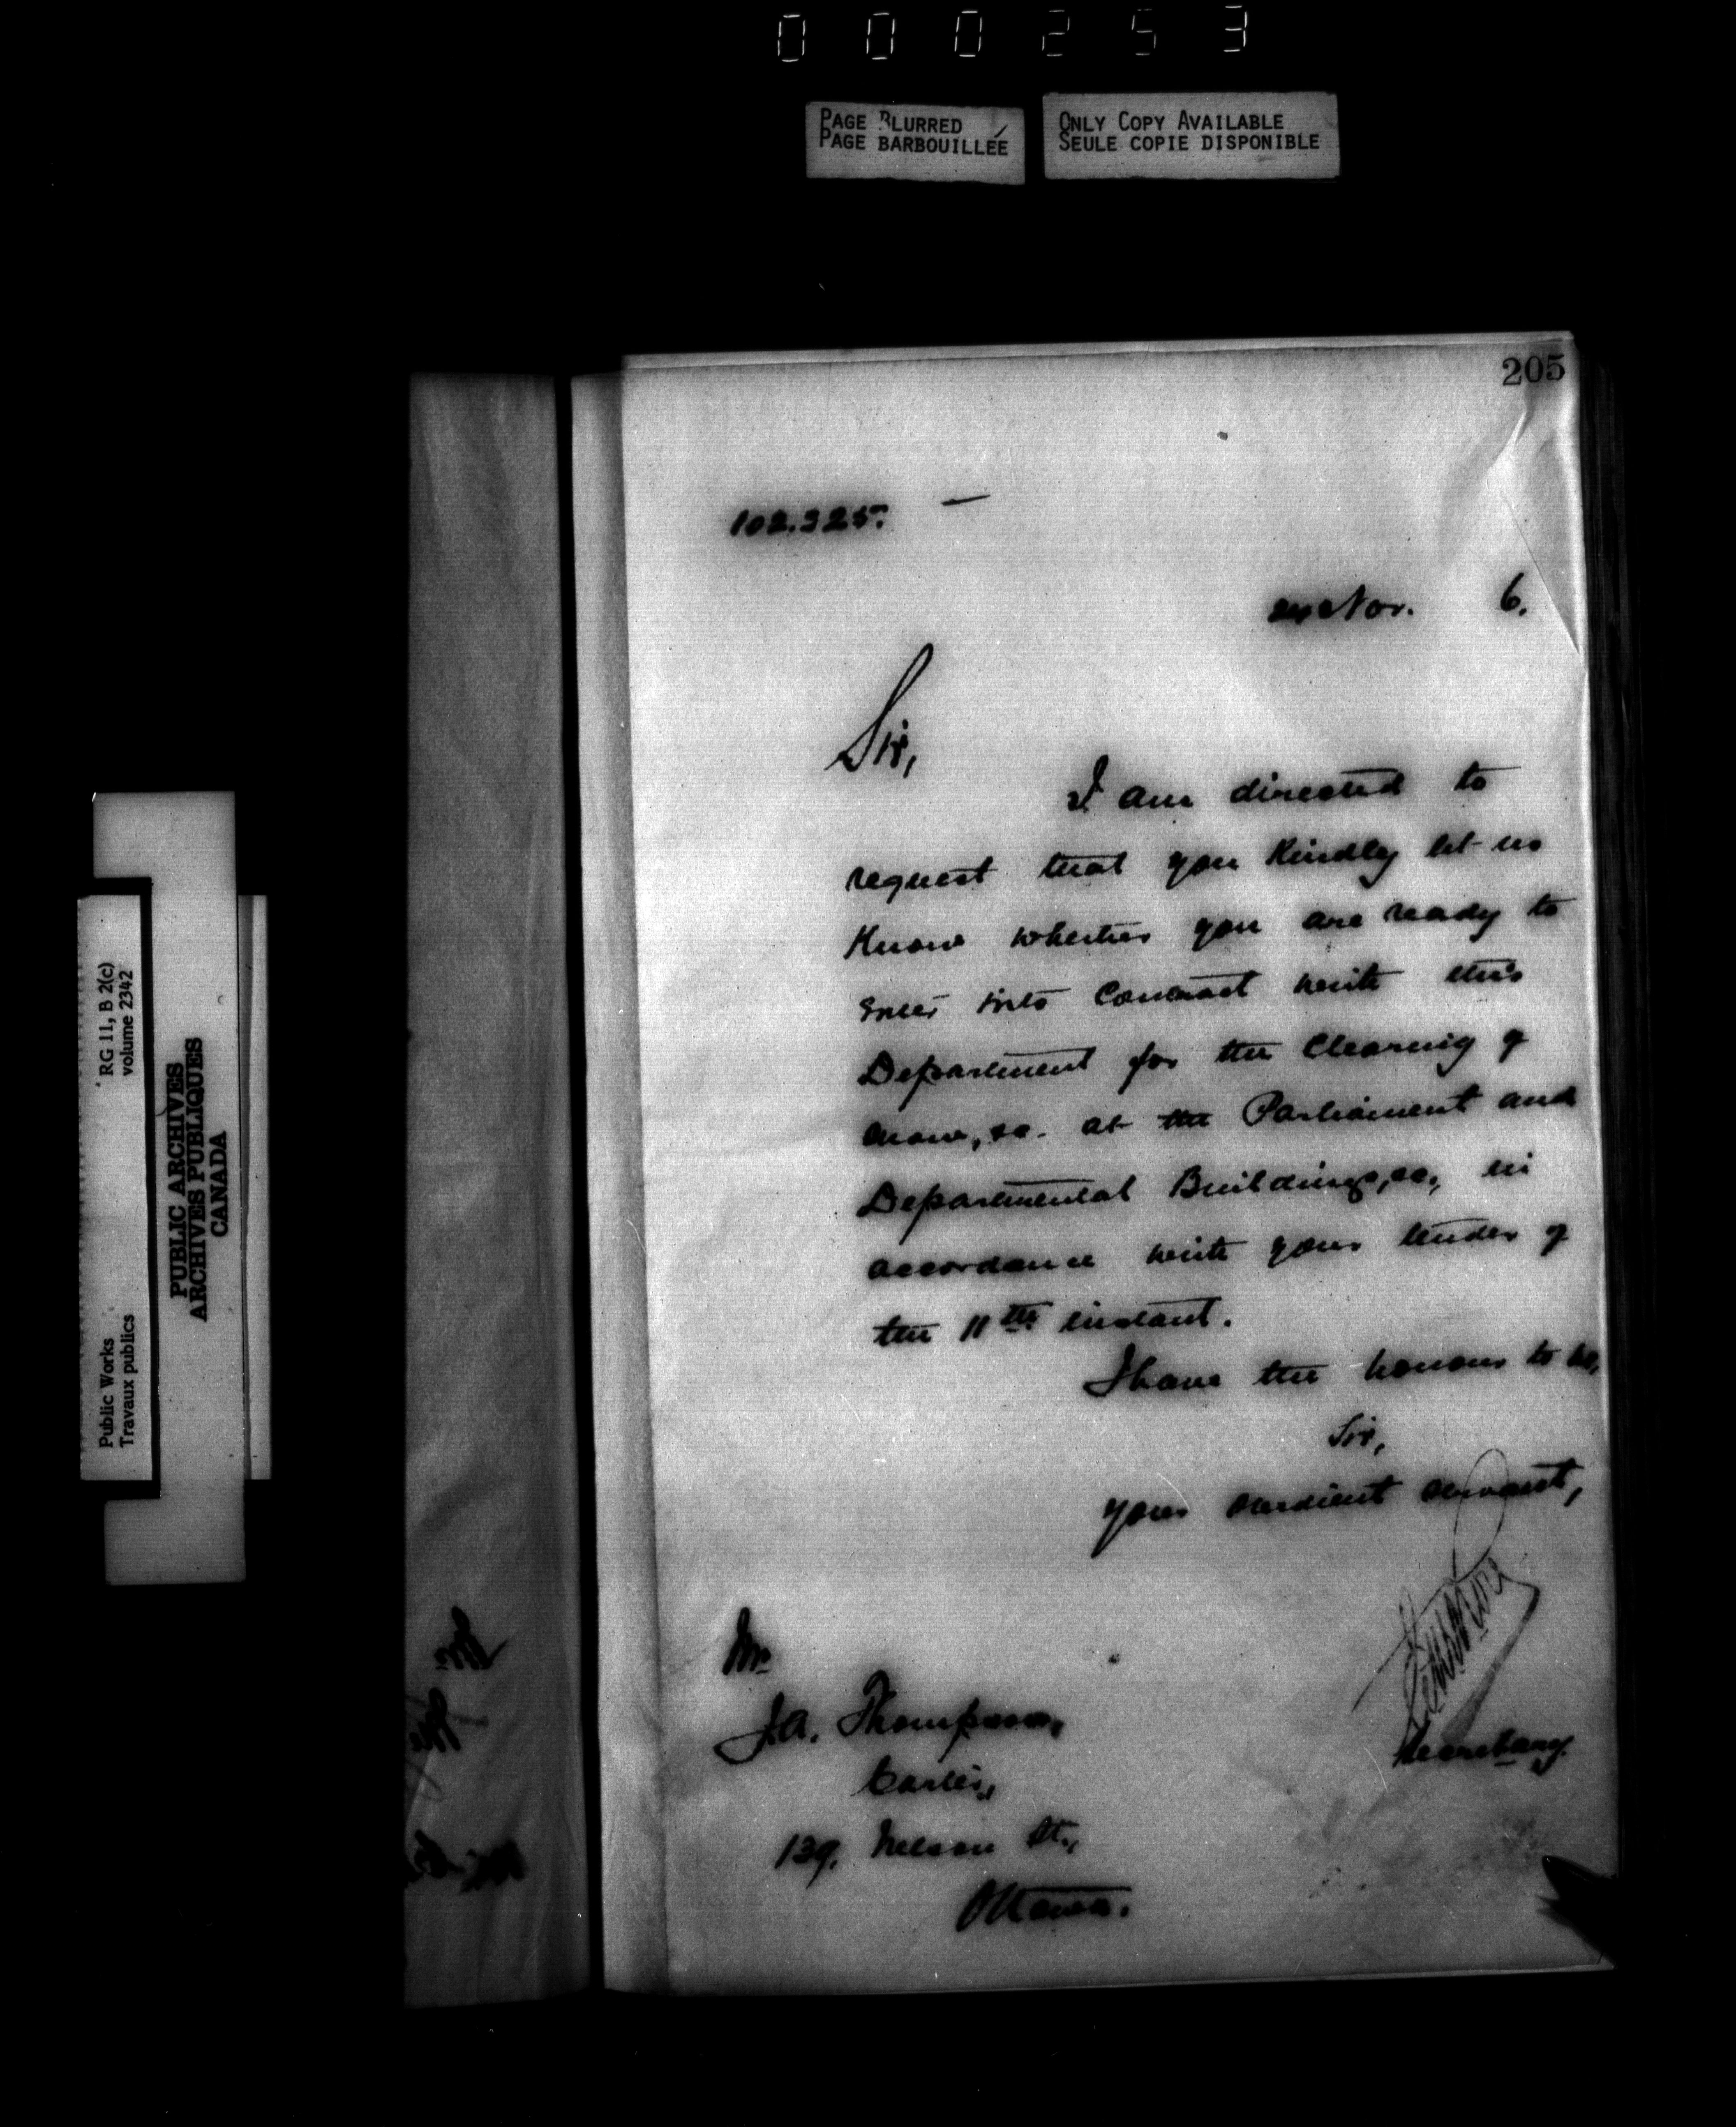 000253
PAGE BLURRED
PAGE BARBOUILLÉE
ONLY COPY AVAILABLE
SEULE COPIE DISPONIBLE
205
102.325.
Nov. 6.
Sir,
I am directed to
request that you Kindly let us
Know whether you are ready to
enter into Contract with this
Department for the Clearing of
snow, &c. at the Parliament and
Departmental Buildings, &c., in
accordance with your tender of
the 11th instant.
I have the honour to be,
Sir,
your obedient servant,
Secretary.
Mr
J.A. Thompson,
Carter,
139, Nelson St.,
Ottawa.
RG 11, B 2(c)
volume 2342
Public Works
Travaux publics
PUBLIC ARCHIVES
ARCHIVES PUBLIQUES
CANADA